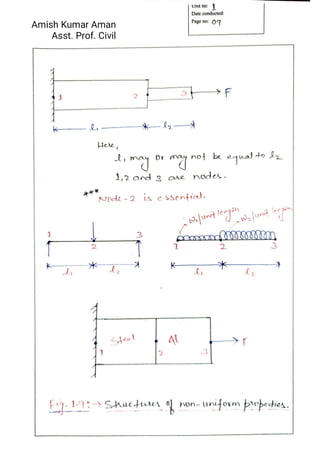 Unit no: 1
Date conducted:
Page no: 09
Amish Kumar Aman
Asst. Prof. Civil
1 2 3 F
l₁ l₂
Here,
l₁ may or may not be equal to l₂
1, 2 and 3 are nodes.
*** Node-2 is essential.
W₁/unit length W₂/unit length
1 3
2
1 2 3
l₁ l₂
l₁ l₂
Steel Al F
1 2 3
Fig. 1.9:→ Structures of non-uniform properties.